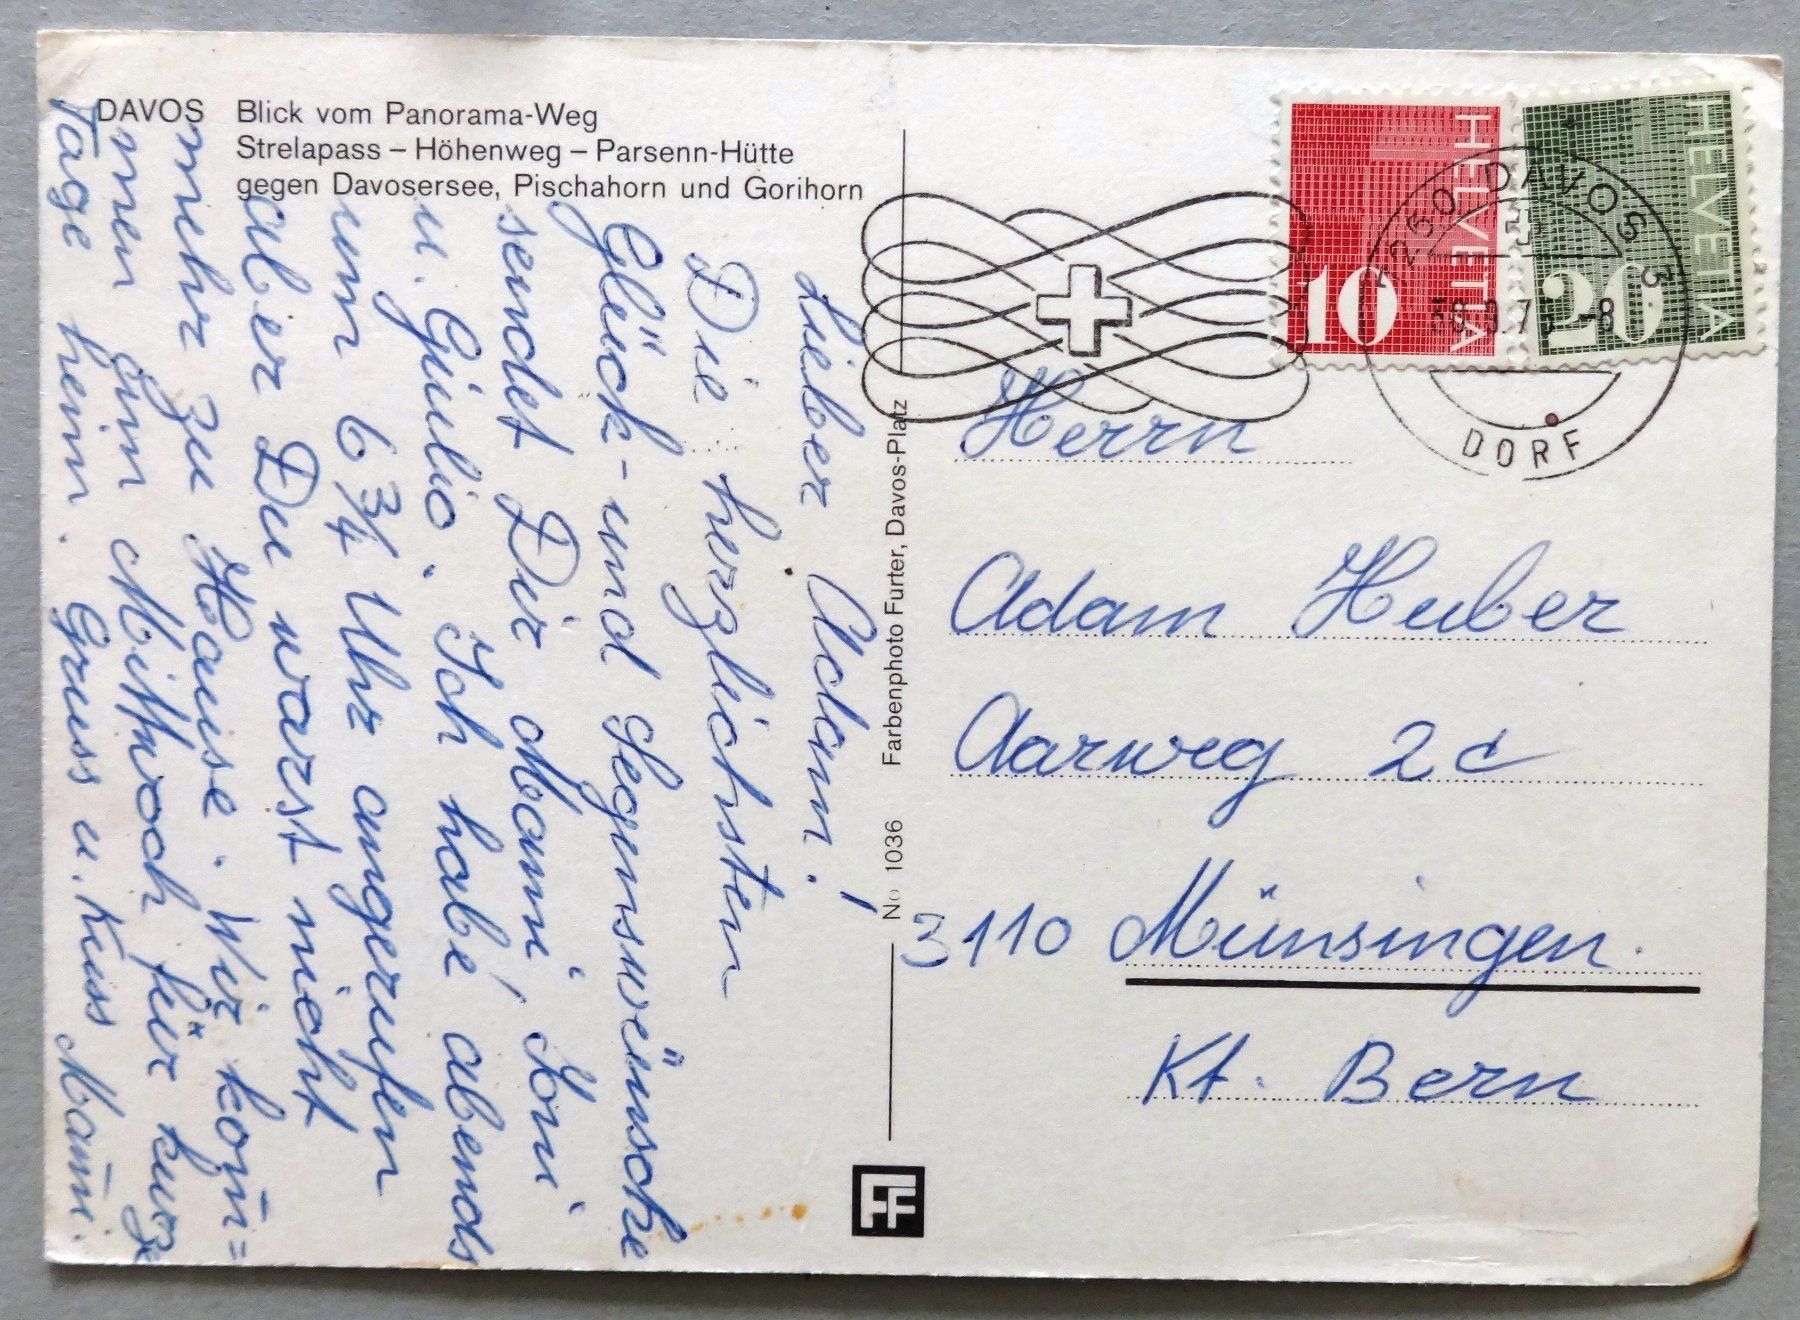 DAVOS Blick vom Panorama-Weg
Strelapass – Höhenweg – Parsenn-Hütte
gegen Davosersee, Pischahorn und Gorihorn
Lieber Adam!
Die herzlichsten
Glück- und Segenswünsche
sendet Dir Mami, Toni
u. Giulio. Ich habe abends
um 6 3/4 Uhr angerufen
aber Du warst nicht
mehr zu Hause. Wir kom̄=
men zim Mittwoch für kurze
Tage heim. Gruss u. Kuss Mam̄i.
No 1036 Farbenphoto Furter, Davos-Platz
FF
HELVETIA
10
HELVETIA
20
7260 DAVOS 3
-8
DORF
Herrn
Adam Huber
Aarweg 2c
3110 Münsingen.
Kt. Bern